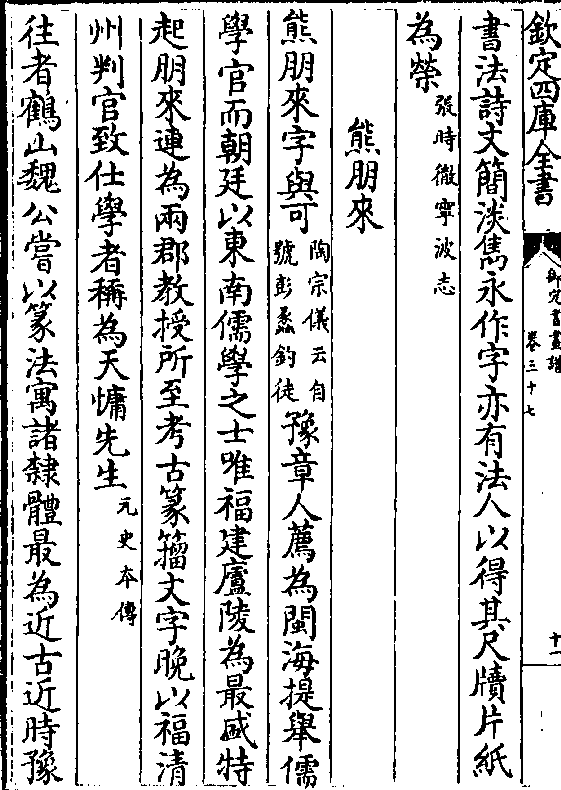 欽定四庫全書
御定書畫譜
卷三十七
十二
書法詩文簡淡雋永作字亦有法人以得其尺牘片紙
為榮張時徹寧波志
熊朋來
熊朋來字與可陶宗儀云自號彭蠡釣徒豫章人薦為閩海提舉儒
學官而朝廷以東南儒學之士唯福建廬陵為最盛特
起朋來連為兩郡教授所至考古篆籀文字晚以福清
州判官致仕學者稱為天慵先生元史本傳
往者鶴山魏公嘗以篆法寓諸隸體最為近古近時豫